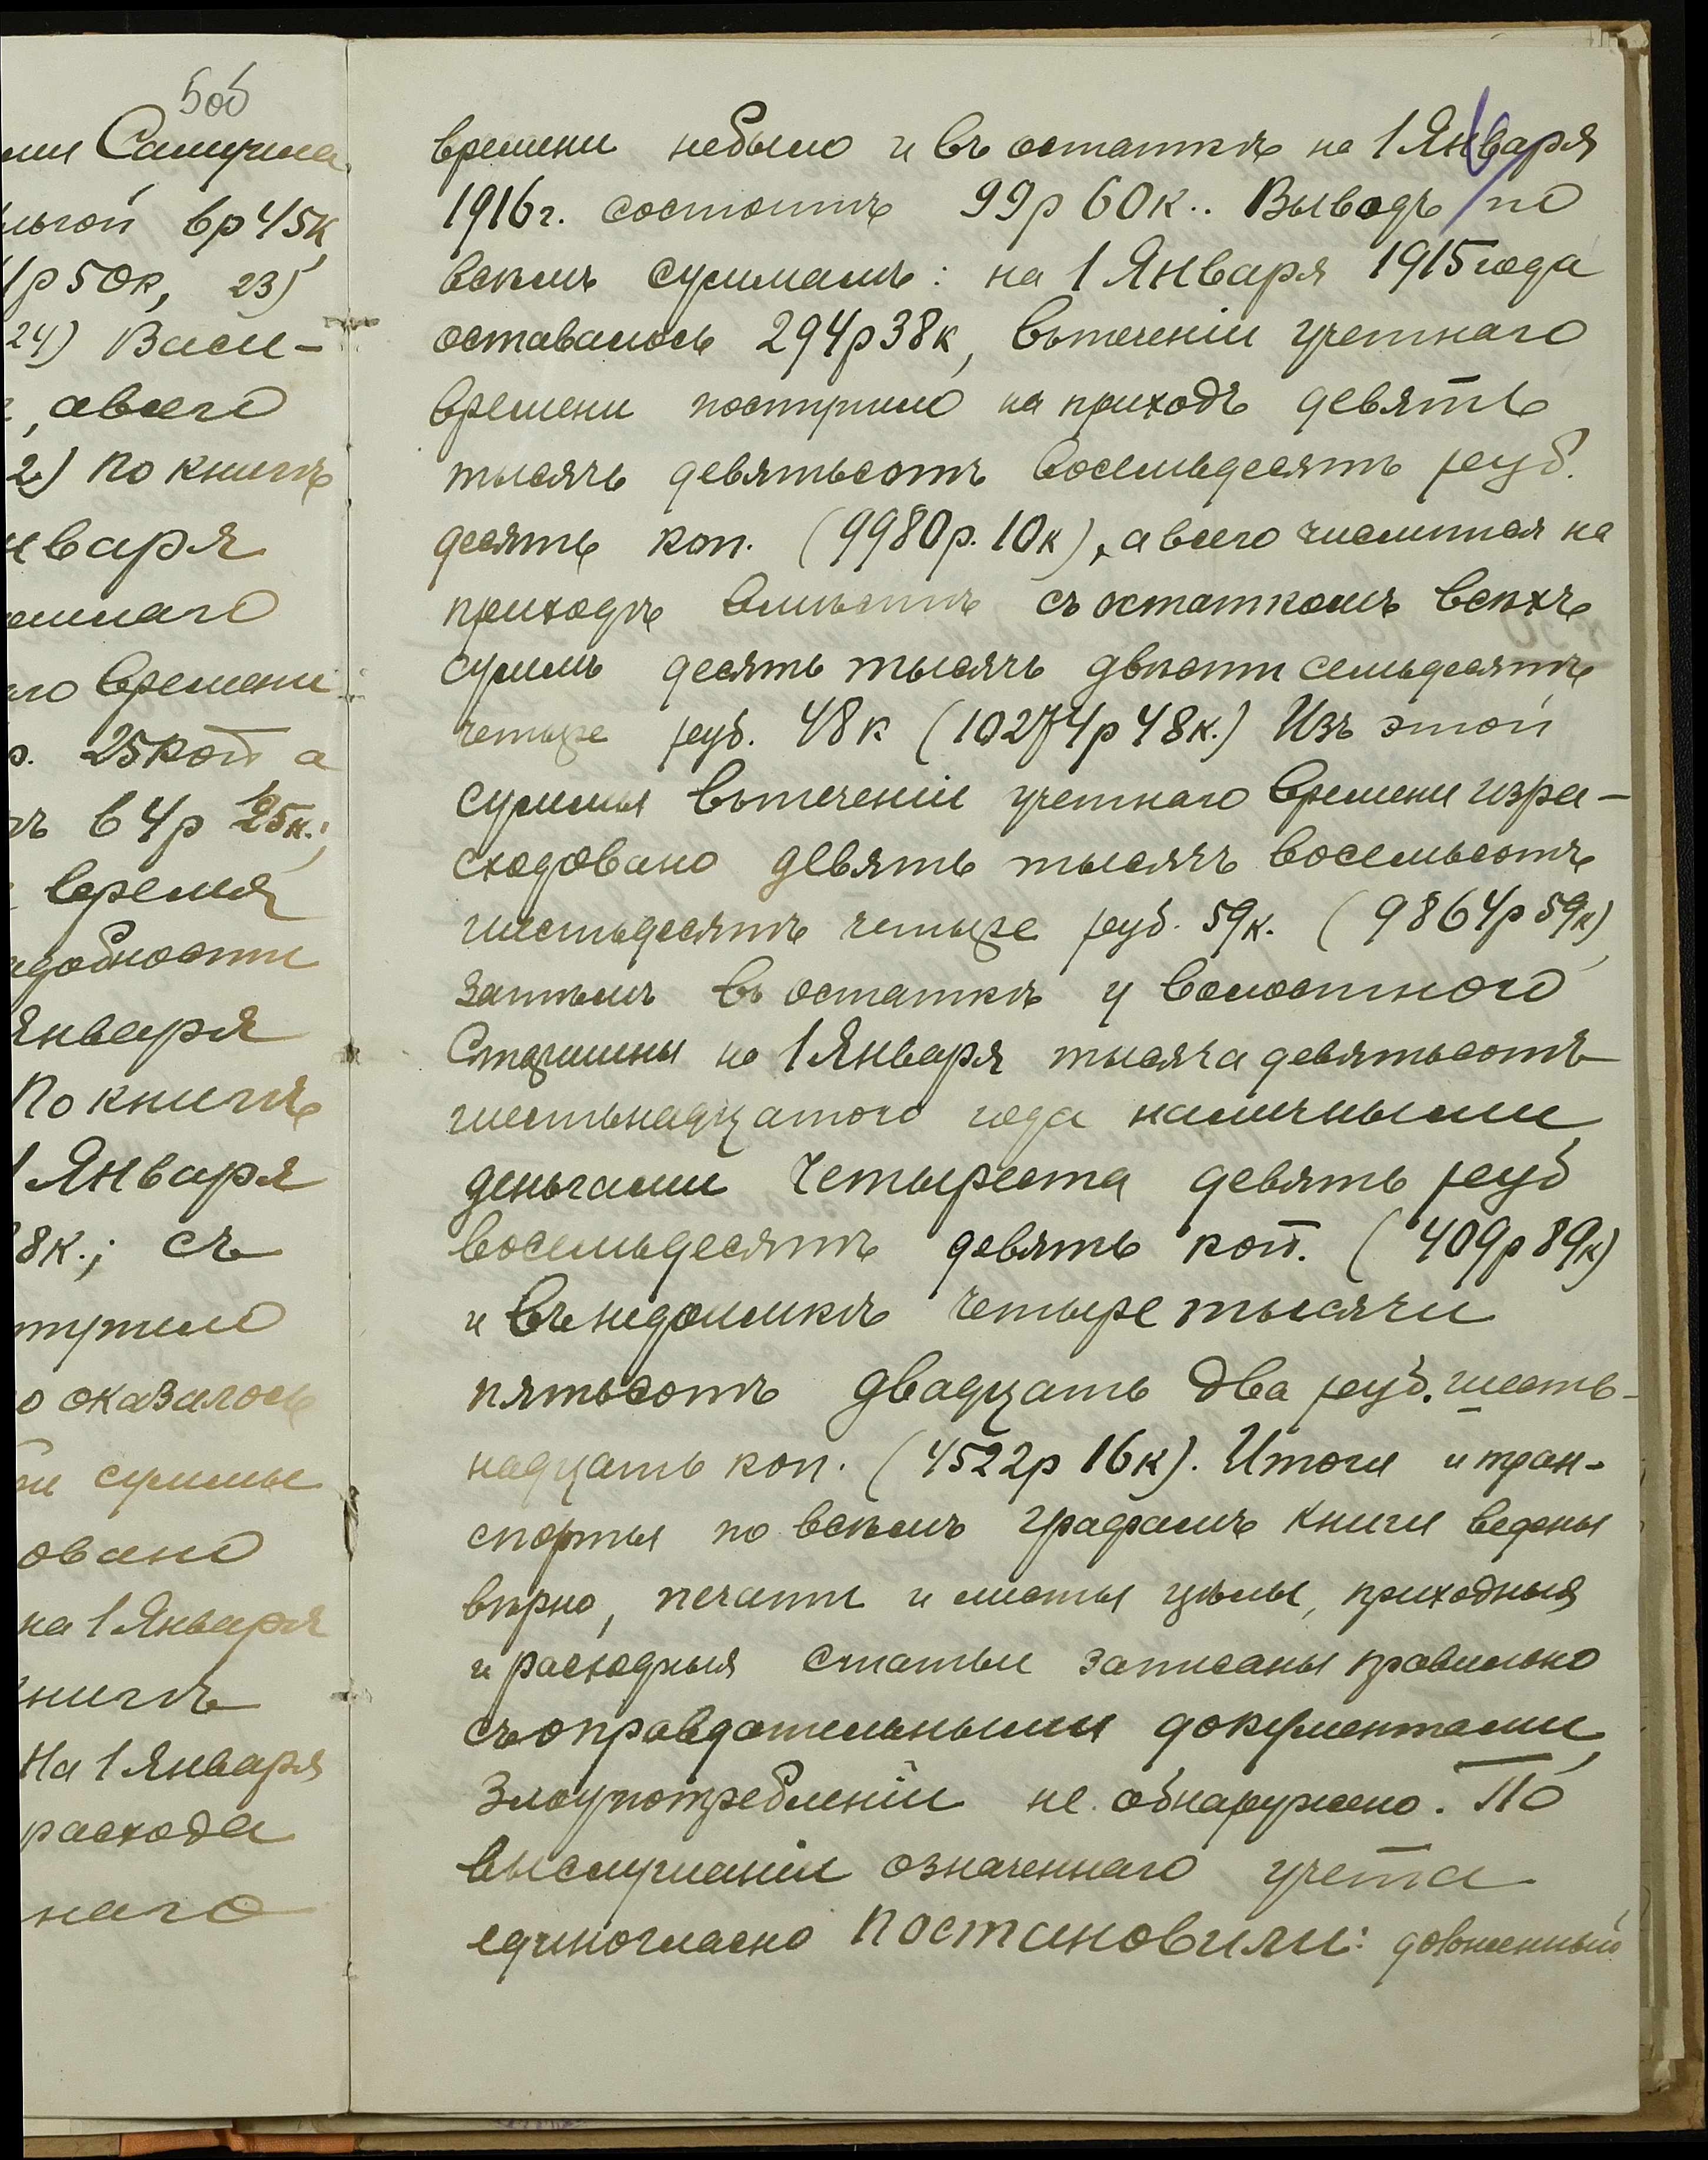 500
ми Самучила
льгой 6р 45к
1р 50к, 23)
24) Васи-
, авсего
2) По книгѣ
нваря
го времени
р. 25коп а
въ 64р 25к.;
время
адобности
Января
По книгѣ
1 Января
8к.; съ
о оказалось
и суммы
овано
на 1 Января
книгѣ
На 1 Января
расхода
наго
времени небыло и въ остаткѣ на 1 Января
1916г. состоитъ 99р 60к.. Выводъ по
всѣмъ суммамъ: на 1 Января 1915 года
оставалось 294р 38к, втеченіи учетнаго
времени поступило на приходъ девять
тысячъ девятьсотъ восемьдесятъ руб.
десять коп. (9980р. 10к), а всего числится на
приходѣ вмѣстѣ съ остаткомъ всѣхъ
суммъ десять тысячъ двѣсти семьдесятъ
четыре руб. 48к (10274р 48к.) Изъ этой
суммы втеченіи учетнаго времени изра-
сходовано девять тысячъ восемьсотъ
шестьдесятъ четыре руб. 59к. (9864р 59к)
затѣмъ въ остаткѣ у волостного
Старшины на 1 Января тысяча девятьсотъ
шестьнадцатого года наличными
деньгами четыреста девять руб
восемьдесятъ девять коп. (409р 89к)
и въ недоимкѣ четыре тысячи
пятьсотъ двадцать два руб. шесть-
надцать коп. (4522р 16к). Итоги и тран-
спорты по всѣмъ графамъ книги ведены
вѣрно, печати и листы цѣлы, приходныя
и расходныя статьи записаны правильно
съ оправдательными документами
злоупотребленіи не обнаружено. По
выслушаніи означеннаго учета
единогласно постановили: доложенный